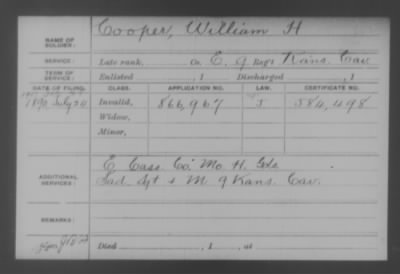 NAME OF SOLDIER: Cooper, William H
SERVICE: Late rank, Co. E, 9 Reg't Kans. Cav
TERM OF SERVICE: Enlisted , 1 Discharged , 1
DATE OF FILING. CLASS. APPLICATION NO. LAW. CERTIFICATE NO.
1890 July 24 Invalid, 866,967 J 584,498
Widow,
Minor,
ADDITIONAL SERVICES: E Cass Co. Mo. H. Gds
Sad. Sgt & M 9 Kans. Cav.
REMARKS:
Died , 1 , at